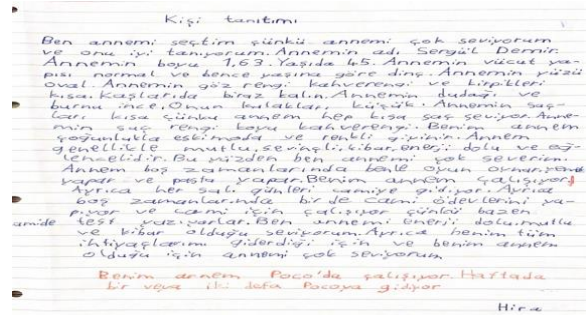 Kişi tanıtımı
Ben annemi seçtim çünkü annemi çok seviyorum
ve onu iyi tanıyorum. Annemin adı Sengül Demir.
Annemin boyu 1,63. Yaşıda 45. Annemin vücut ya-
pısı normal ve bence yaşına göre dinç. Annemin yüzü
oval. Annemin göz rengi kahverengi ve kirpikleri
kısa. Kaşlarıda biraz kalın. Annemin dudağı ve
burnu ince. Onun kulakları küçük. Annemin saç-
ları kısa çünkü annem hep kısa saç seviyor. Anne-
min saç rengi koyu kahverengi. Benim annem
çoğunlukla eskimola ve renkli giyinir. Annem
genellikle mutlu, sevinçli, kibar, enerji dolu ve eğ-
lencelidir. Bu yüzden ben annemi çok severim.
Annem boş zamanlarında benle oyun oynar, yemek
yapar ve pasta yapar. Benim annem çalışıyor.
Ayrıca her salı günleri camiye gidiyor. Ayrıca
boş zamanlarında bir de cami ödevlerini ya-
pıyor ve cami için çalışıyor çünkü bazen
amide test yazıyorlar. Ben annemi enerji dolu, mutlu
ve kibar olduğu seviyorum. Ayrıca benim tüm
ihtiyaçlarımı giderdiği için ve benim annem
olduğu için annemi çok seviyorum
Benim annem Poco'da çalışıyor. Haftada
bir veya iki defa Pocoya gidiyor
Hira